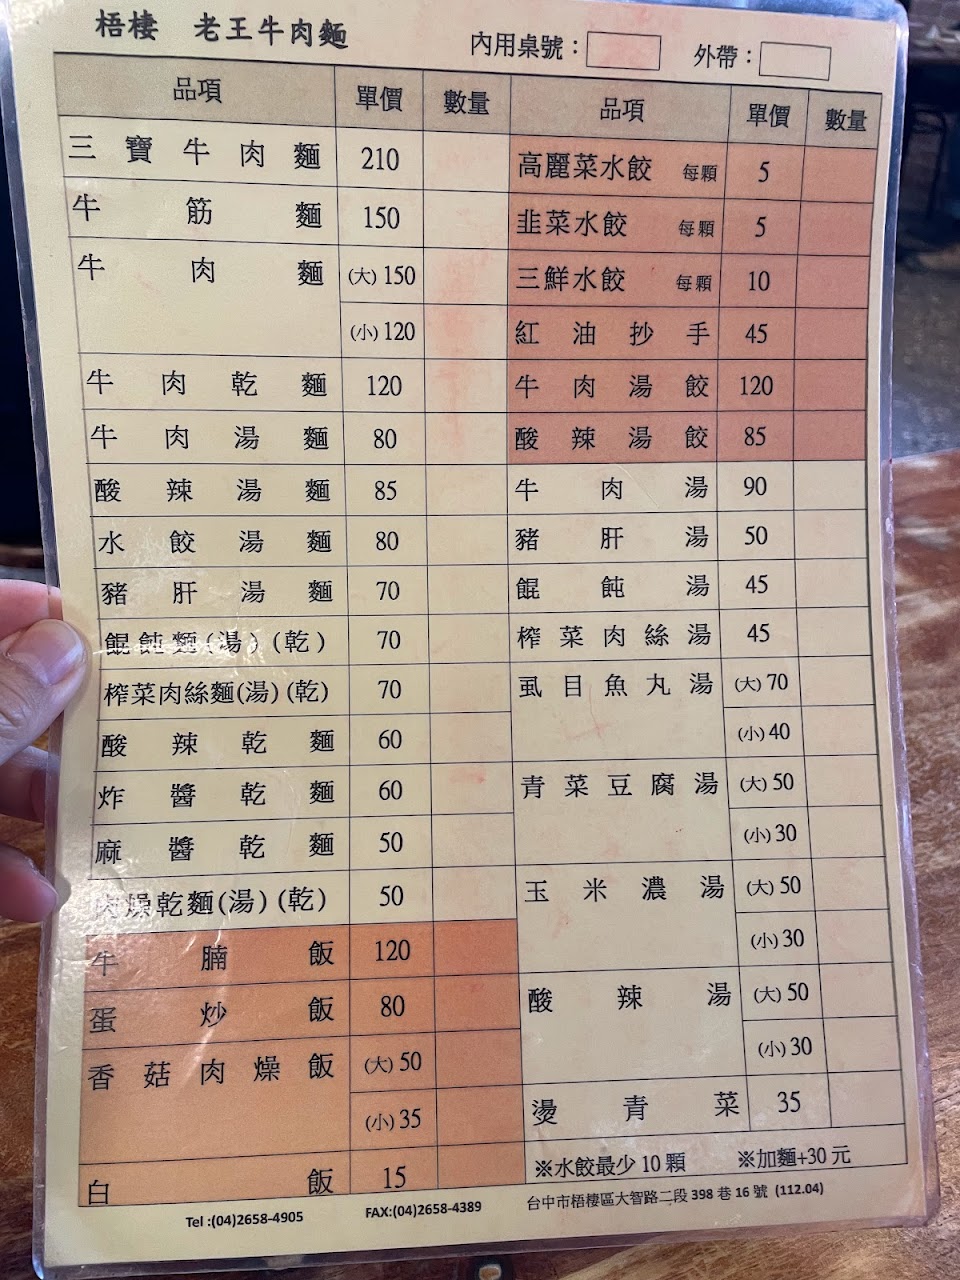 梧棲 老王牛肉麵
內用桌號： 外帶：
品項 單價 數量
三寶牛肉麵 210
牛筋麵 150
牛肉麵 (大) 150
(小) 120
牛肉乾麵 120
牛肉湯麵 80
酸辣湯麵 85
水餃湯麵 80
豬肝湯麵 70
餛飩麵(湯)(乾) 70
榨菜肉絲麵(湯)(乾) 70
酸辣乾麵 60
炸醬乾麵 60
麻醬乾麵 50
肉燥乾麵(湯)(乾) 50
牛腩飯 120
蛋炒飯 80
香菇肉燥飯 (大) 50
(小) 35
白飯 15
品項 單價 數量
高麗菜水餃 每顆 5
韭菜水餃 每顆 5
三鮮水餃 每顆 10
紅油抄手 45
牛肉湯餃 120
酸辣湯餃 85
牛肉湯 90
豬肝湯 50
餛飩湯 45
榨菜肉絲湯 45
虱目魚丸湯 (大) 70
(小) 40
青菜豆腐湯 (大) 50
(小) 30
玉米濃湯 (大) 50
(小) 30
酸辣湯 (大) 50
(小) 30
燙青菜 35
※水餃最少 10 顆 ※加麵+30 元
Tel :(04)2658-4905 FAX:(04)2658-4389 台中市梧棲區大智路二段 398 巷 16 號 (112.04)